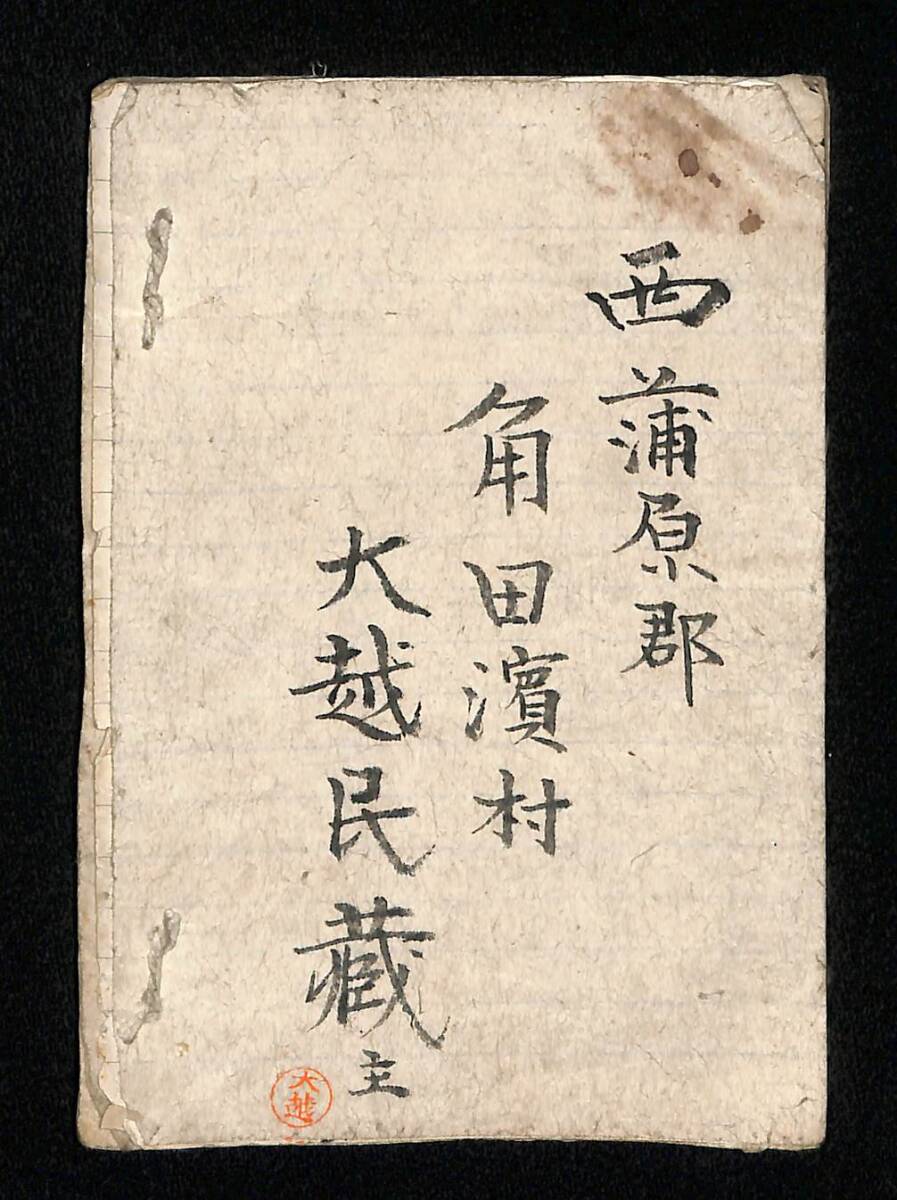 西蒲原郡
角田濱村
大越民藏主
大越